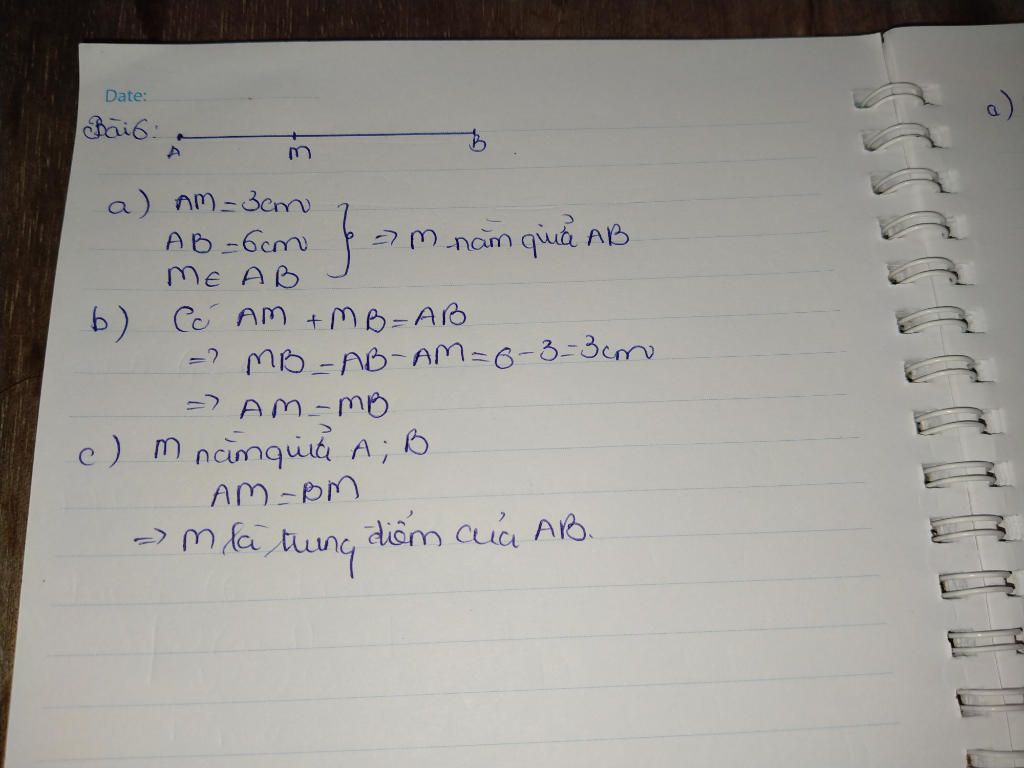 Date:
Bài 6:
A M B
a) AM = 3cm
AB = 6cm } => M nằm giữa AB
M ∈ AB
b) Có AM + MB = AB
=> MB = AB - AM = 6 - 3 = 3cm
=> AM = MB
c) M nằm giữa A; B
AM = BM
=> M là trung điểm của AB.
a)